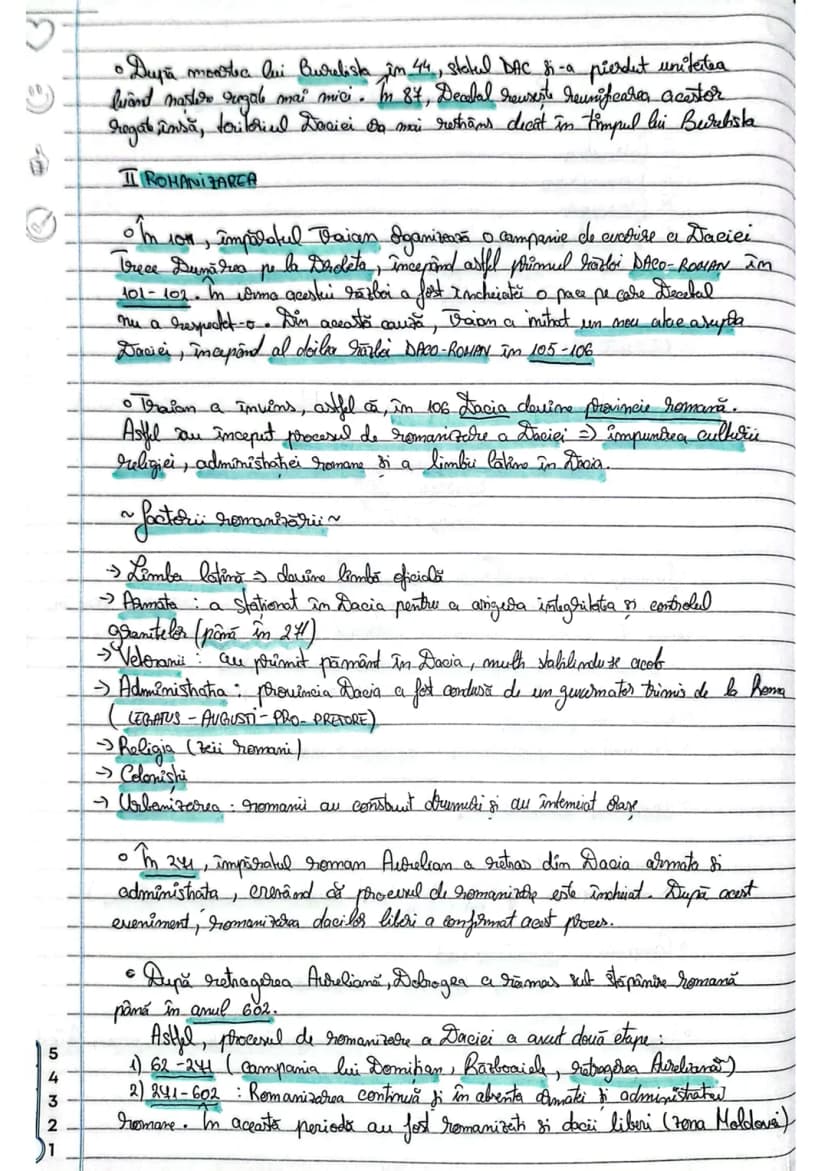 ° După moartea lui Burebista în 44, statul DAC și-a pierdut unitatea
luând naștere regate mai mici. În 87, Decebal reusește reunificarea acestor
regate însă, teritoriul Daciei era mai restrâns decât în timpul lui Burebista
II ROMANIZAREA
° În 101, împăratul Traian organizează o campanie de cucerire a Daciei
Trece Dunărea pe la Drobeta, începând astfel primul război DACO-ROMAN în
101-102. În urma acestui război a fost încheiată o pace pe care Decebal
nu a respectat-o. Din această cauză, Traian a inițiat un nou atac asupra
Daciei, începând al doilea război DACO-ROMAN în 105-106
° Traian a învins, astfel că, în 106 Dacia devine provincie romană.
Astfel au început procesul de romanizare a Daciei => impunerea culturii
religiei, administrației romane și a limbii latine în Dacia.
~ factorii romanizării ~
→ Limba latină => devine limbă oficială
→ Armata : a staționat în Dacia pentru a asigura integritatea și controlul
granițelor (până în 271)
→ Veteranii : au primit pământ în Dacia, mulți stabilindu-se acolo
→ Administrația : provincia Dacia a fost condusă de un guvernator trimis de la Roma
( LEGATUS - AUGUSTI - PRO - PRETORE)
→ Religia (zeii romani)
→ Coloniști
→ Urbanizarea : romanii au construit drumuri și au întemeiat orașe
° În 271, împăratul roman Aurelian a retras din Dacia armata și
administrata, crezând că procesul de romanizare este închiat. După acest
eveniment, romanizarea dacilor liberi a confirmat acest proces.
° După retragerea Aureliană, Dobrogea a rămas sub stăpânire romană
până în anul 602.
Astfel, procesul de romanizare a Daciei a avut două etape :
1) 62-271 ( campania lui Domițian, Războaiele, retragerea Aureliană)
2) 271-602 : Romanizarea continuă și în absența armatei și administrației
romane. În această perioadă au fost romanizați și dacii liberi (zona Moldovei)
5
4
3
2
1